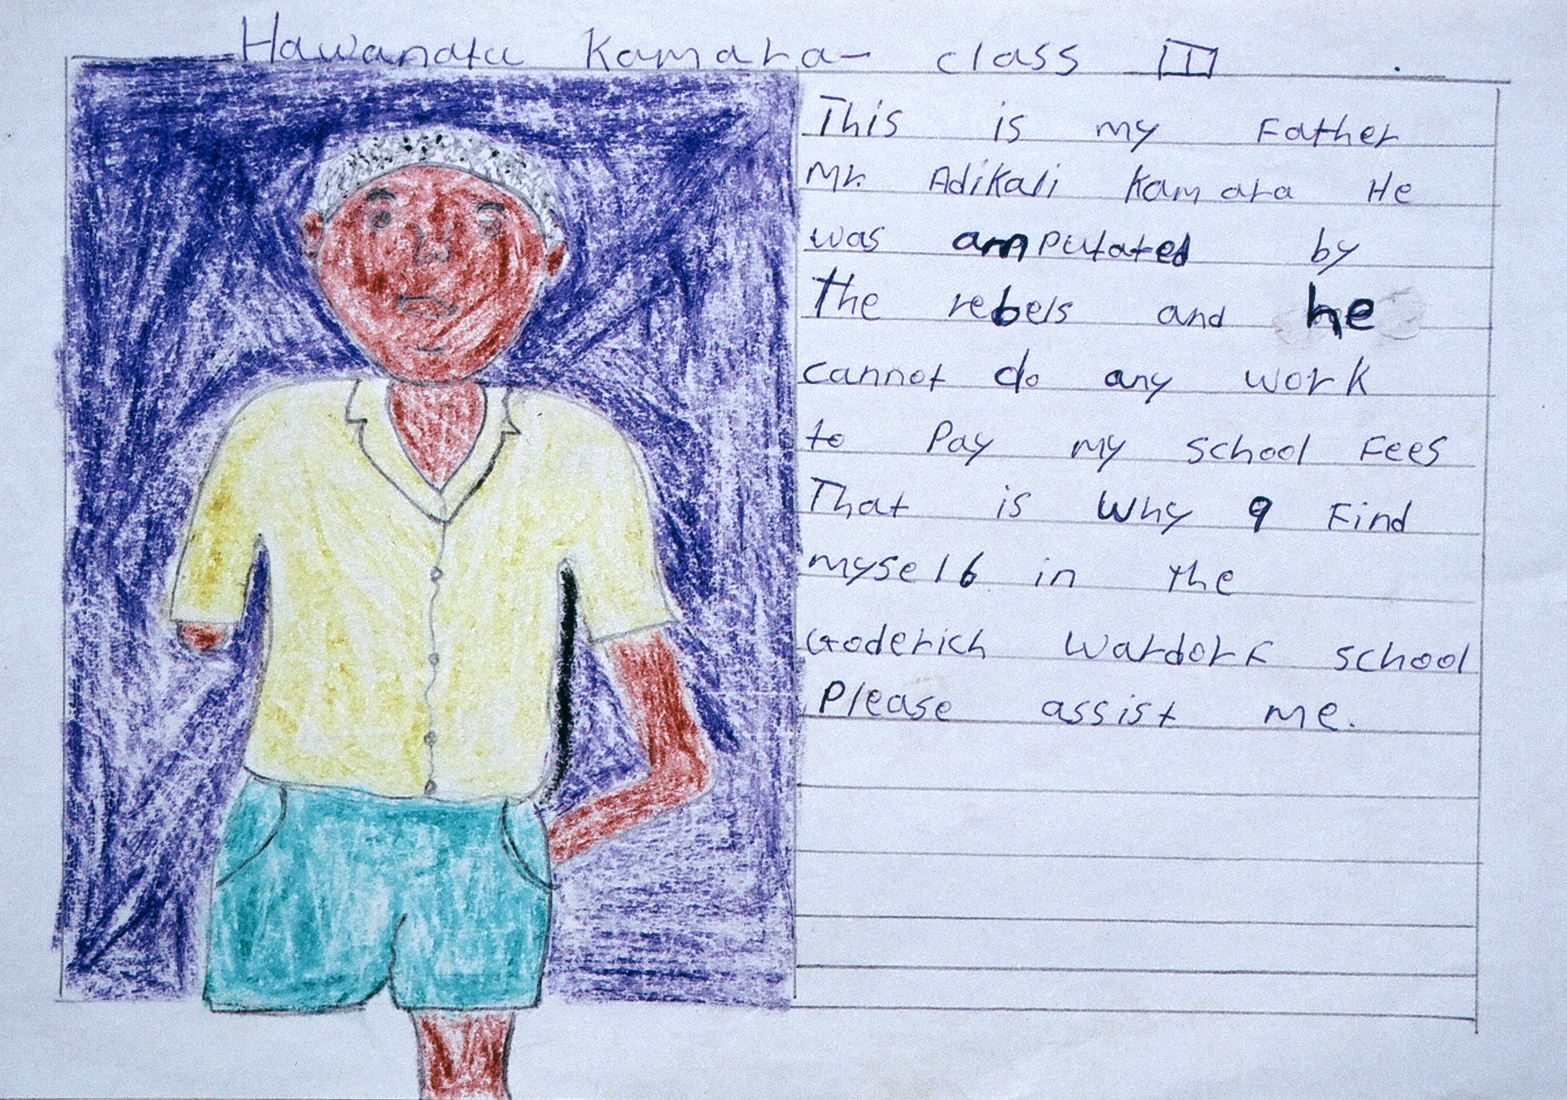 Hawanatu Kamara- class III
This is my Father
Mr. Adikali Kamara He
was amputated by
the rebels and he
cannot do any work
to Pay my school Fees
That is Why 9 Find
myself in the
Goderich Wardorf school
Please assist me.